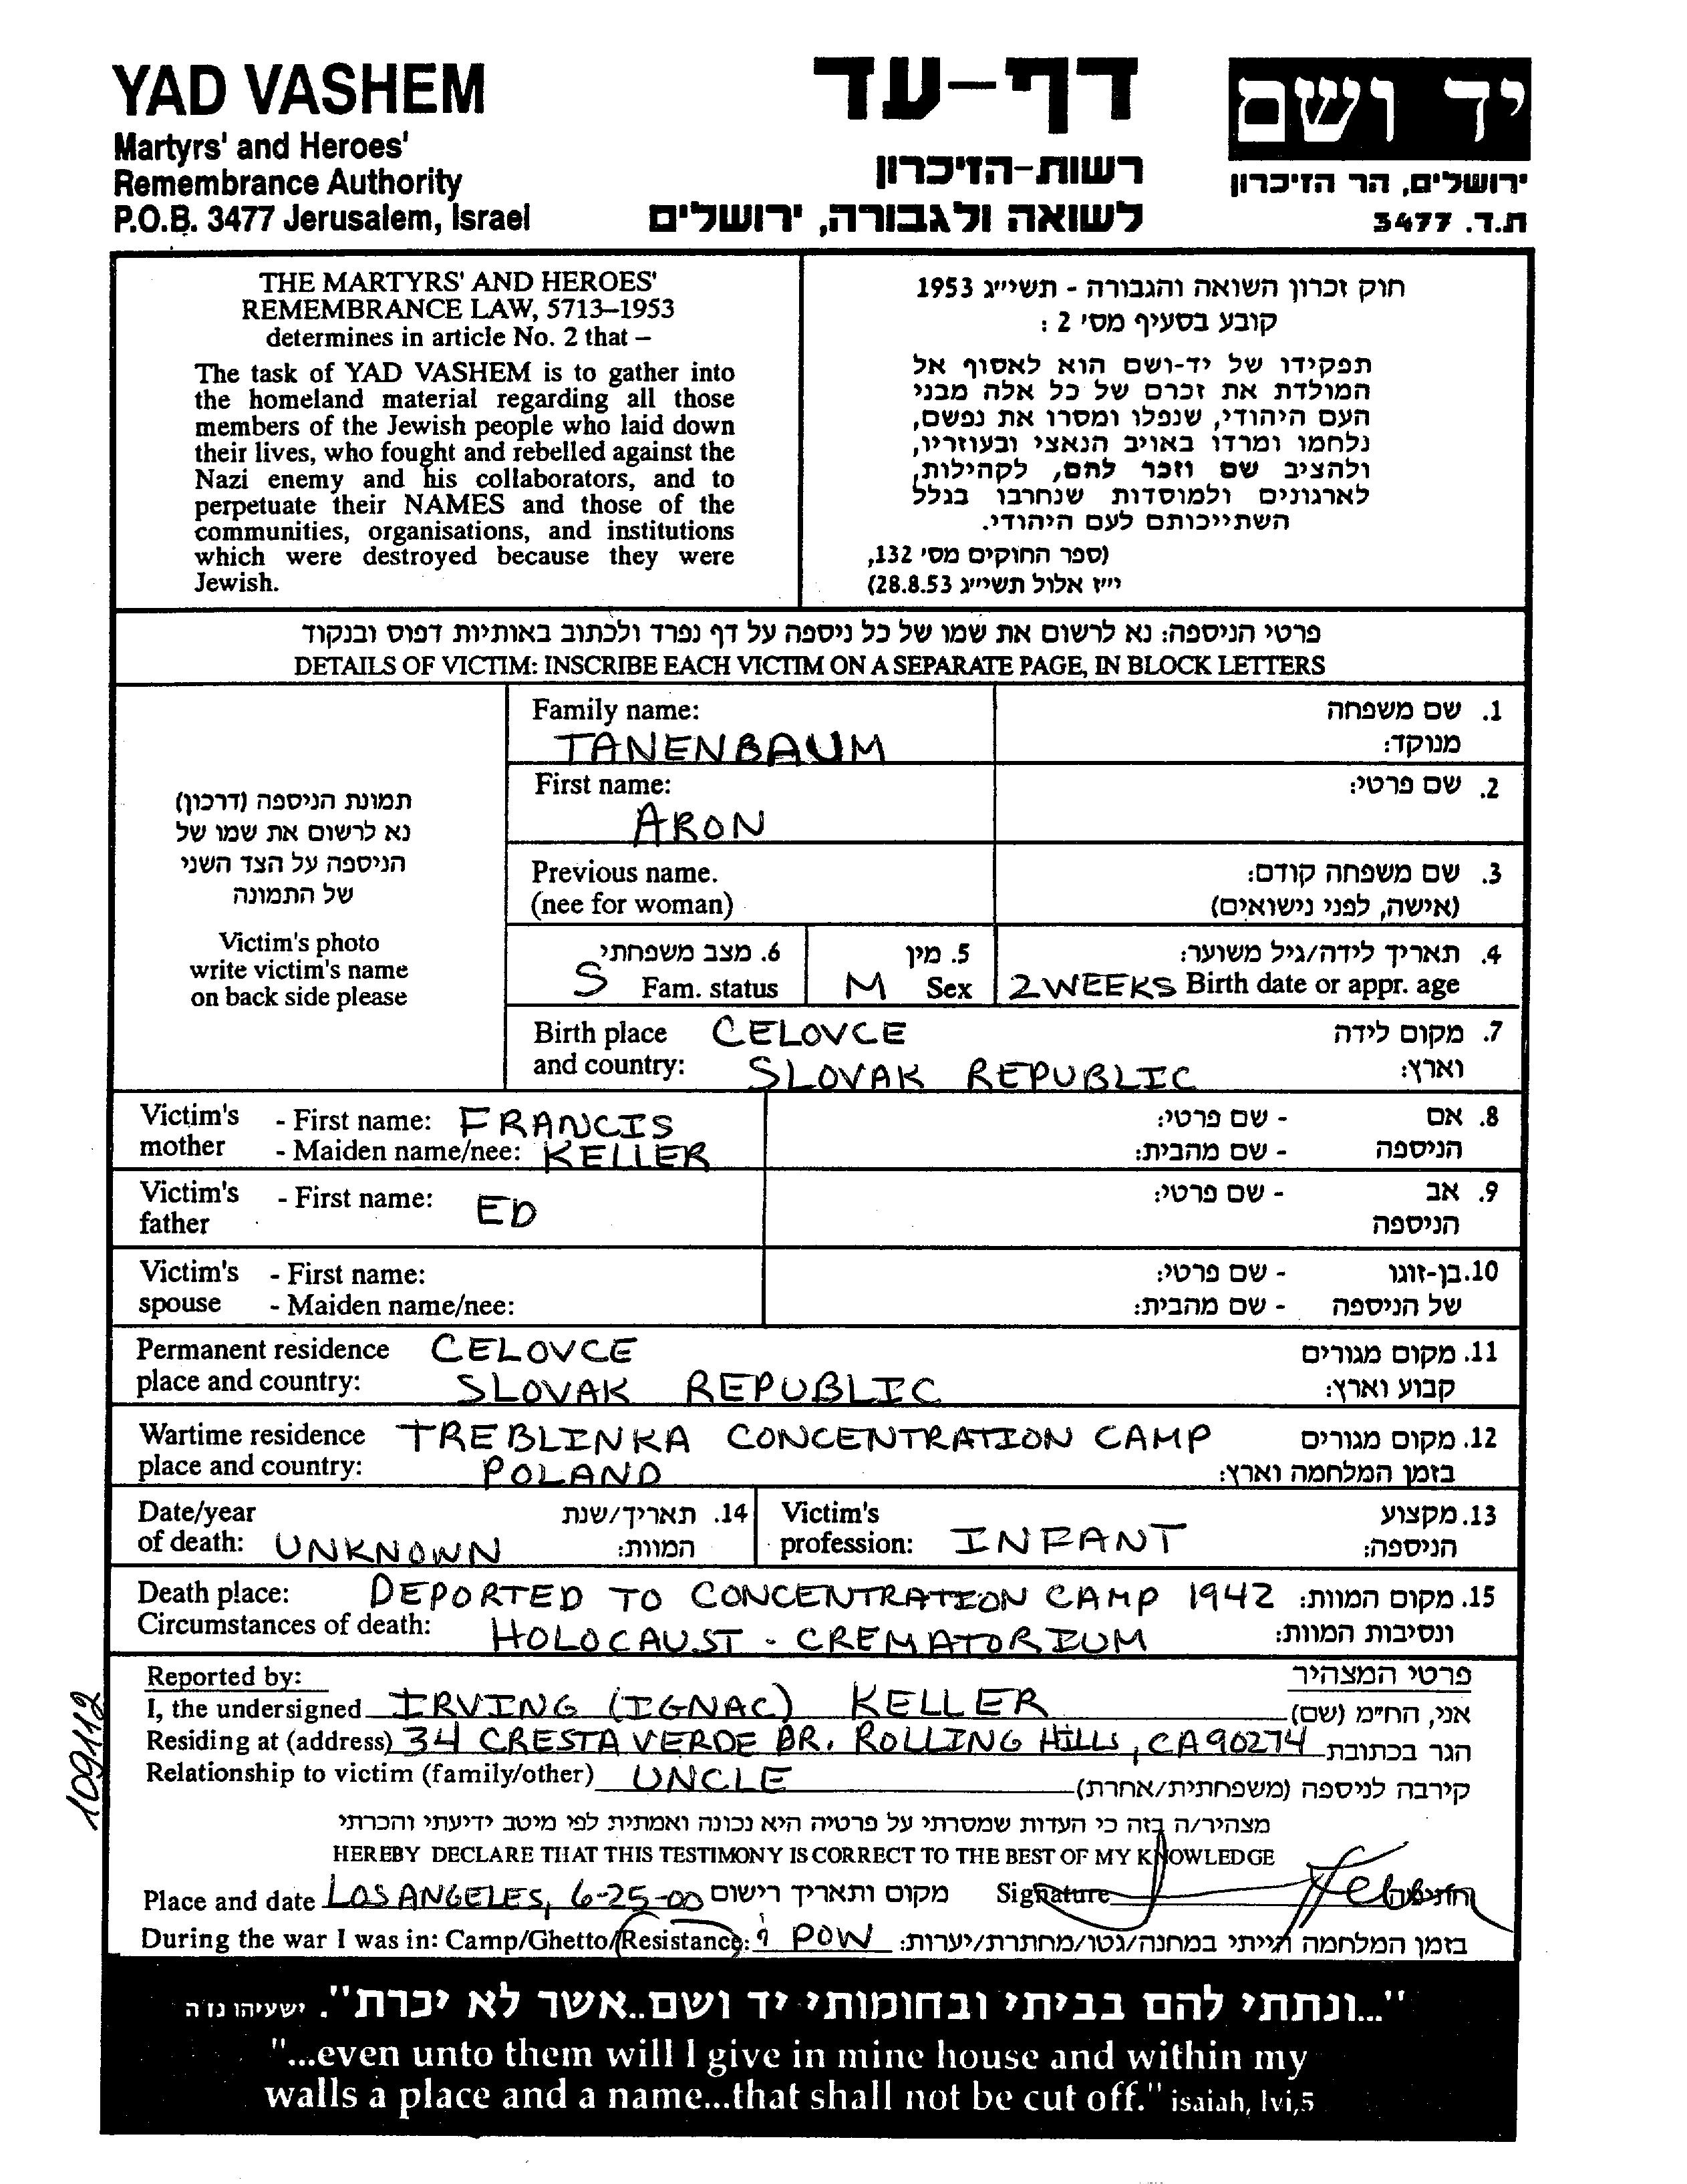 YAD VASHEM
Martyrs' and Heroes'
Remembrance Authority
P.O.B. 3477 Jerusalem, Israel
דף-עד
רשות-הזיכרון
לשואה ולגבורה, ירושלים
יד ושם
ירושלים, הר הזיכרון
ת.ד. 3477
THE MARTYRS' AND HEROES'
REMEMBRANCE LAW, 5713–1953
determines in article No. 2 that –
The task of YAD VASHEM is to gather into
the homeland material regarding all those
members of the Jewish people who laid down
their lives, who fought and rebelled against the
Nazi enemy and his collaborators, and to
perpetuate their NAMES and those of the
communities, organisations, and institutions
which were destroyed because they were
Jewish.
חוק זכרון השואה והגבורה - תשי״ג 1953
קובע בסעיף מס׳ 2 :
תפקידו של יד-ושם הוא לאסוף אל
המולדת את זכרם של כל אלה מבני
העם היהודי, שנפלו ומסרו את נפשם,
נלחמו ומרדו באויב הנאצי ובעוזריו,
ולהציב שם וזכר להם, לקהילות,
לארגונים ולמוסדות שנחרבו בגלל
השתייכותם לעם היהודי.
(ספר החוקים מס׳ 132,
י״ז אלול תשי״ג 28.8.53)
פרטי הניספה: נא לרשום את שמו של כל ניספה על דף נפרד ולכתוב באותיות דפוס ובנקוד
DETAILS OF VICTIM: INSCRIBE EACH VICTIM ON A SEPARATE PAGE, IN BLOCK LETTERS
תמונת הניספה (דרכון)
נא לרשום את שמו של
הניספה על הצד השני
של התמונה
Victim's photo
write victim's name
on back side please
Family name: 1. שם משפחה
TANENBAUM מנוקד:
First name: 2. שם פרטי:
ARON
Previous name. 3. שם משפחה קודם:
(nee for woman) (אישה, לפני נישואים)
6. מצב משפחתי 5. מין 4. תאריך לידה/גיל משוער:
S Fam. status M Sex 2 WEEKS Birth date or appr. age
Birth place CELOVCE 7. מקום לידה
and country: SLOVAK REPUBLIC וארץ:
Victim's - First name: FRANCIS - שם פרטי: 8. אם
mother - Maiden name/nee: KELLER - שם מהבית: הניספה
Victim's - First name: ED - שם פרטי: 9. אב
father הניספה
Victim's - First name: - שם פרטי: 10. בן-זוגו
spouse - Maiden name/nee: - שם מהבית: של הניספה
Permanent residence CELOVCE 11. מקום מגורים
place and country: SLOVAK REPUBLIC קבוע וארץ:
Wartime residence TREBLINKA CONCENTRATION CAMP 12. מקום מגורים
place and country: POLAND בזמן המלחמה וארץ:
Date/year 14. תאריך/שנת Victim's 13. מקצוע
of death: UNKNOWN המוות: profession: INFANT הניספה:
Death place: DEPORTED TO CONCENTRATION CAMP 1942 15. מקום המוות:
Circumstances of death: HOLOCAUST - CREMATORIUM ונסיבות המוות:
Reported by: פרטי המצהיר
I, the undersigned IRVING (IGNAC) KELLER אני, הח״מ (שם)
Residing at (address) 34 CRESTA VERDE DR. ROLLING HILLS, CA 90274 הגר בכתובת
Relationship to victim (family/other) UNCLE קירבה לניספה (משפחתית/אחרת)
מצהיר/ה בזה כי העדות שמסרתי על פרטיה היא נכונה ואמתית לפי מיטב ידיעתי והכרתי
HEREBY DECLARE THAT THIS TESTIMONY IS CORRECT TO THE BEST OF MY KNOWLEDGE
Place and date LOS ANGELES, 6-25-00 מקום ותאריך רישום Signature חתימה
During the war I was in: Camp/Ghetto/Resistance: POW בזמן המלחמה הייתי במחנה/גטו/מחתרת/יערות:
109112
"...ונתתי להם בביתי ובחומותי יד ושם..אשר לא יכרת". ישעיהו נו׳ה
"...even unto them will I give in mine house and within my
walls a place and a name...that shall not be cut off." isaiah, lvi,5